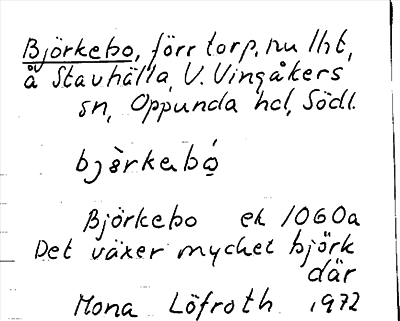 Björkebo, förr torp, nu lht,
å Stavhälla, V. Vingåkers
sn, Oppunda hd, Södl.
bjèrkabó̱
Björkebo ek 10G0a
Det växer mycket björk
där
Mona Löfroth 1972